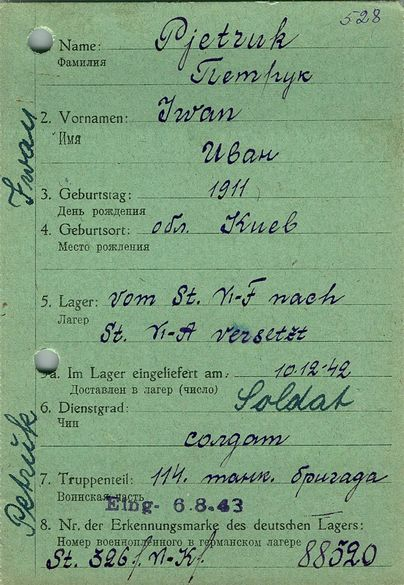 528
Name: Pjetruk
Фамилия
Петрук
2. Vornamen: Iwan
Имя
Иван
3. Geburtstag: 1911
День рождения
4. Geburtsort: обл. Киев
Место рожления
5. Lager: vom St. VI-F nach
Лагер
St. VI-A versetzt
a. Im Lager eingeliefert am: 10.12.42
Доставлен в лагер (число)
6. Dienstgrad: Soldat
Чин
солдат
7. Truppenteil: 114. танк. бригада
Воинская часть
Eing- 6.8.43
8. Nr. der Erkennungsmarke des deutschen Lagers:
Номер военнопленного в германском лагере
St. 326 f. VI-K f. 88520
Iwan
Petruk